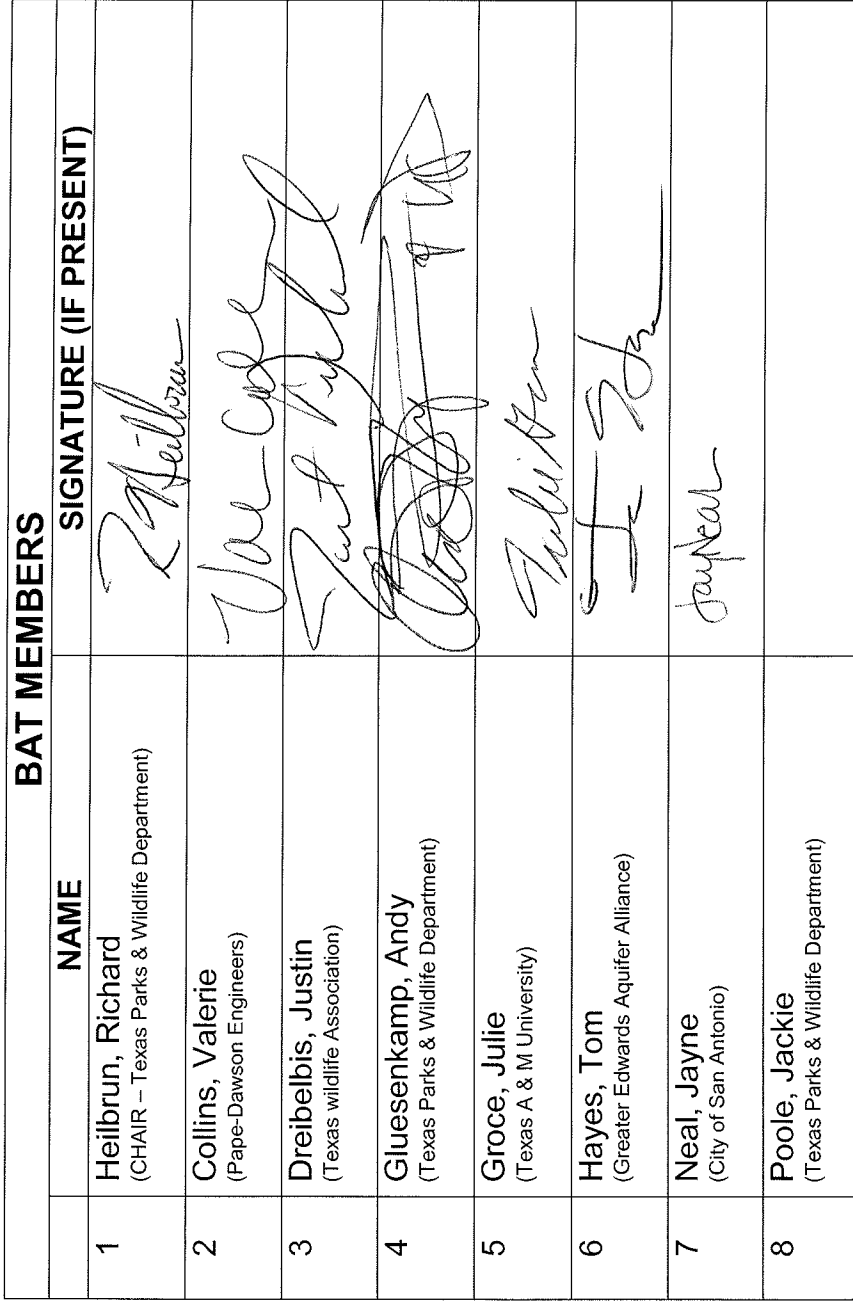 BAT MEMBERS
NAME
SIGNATURE (IF PRESENT)
1
Heilbrun, Richard
(CHAIR – Texas Parks & Wildlife Department)
R Heilbrun
2
Collins, Valerie
(Pape-Dawson Engineers)
3
Dreibelbis, Justin
(Texas wildlife Association)
4
Gluesenkamp, Andy
(Texas Parks & Wildlife Department)
5
Groce, Julie
(Texas A & M University)
6
Hayes, Tom
(Greater Edwards Aquifer Alliance)
7
Neal, Jayne
(City of San Antonio)
Jayne Neal
8
Poole, Jackie
(Texas Parks & Wildlife Department)